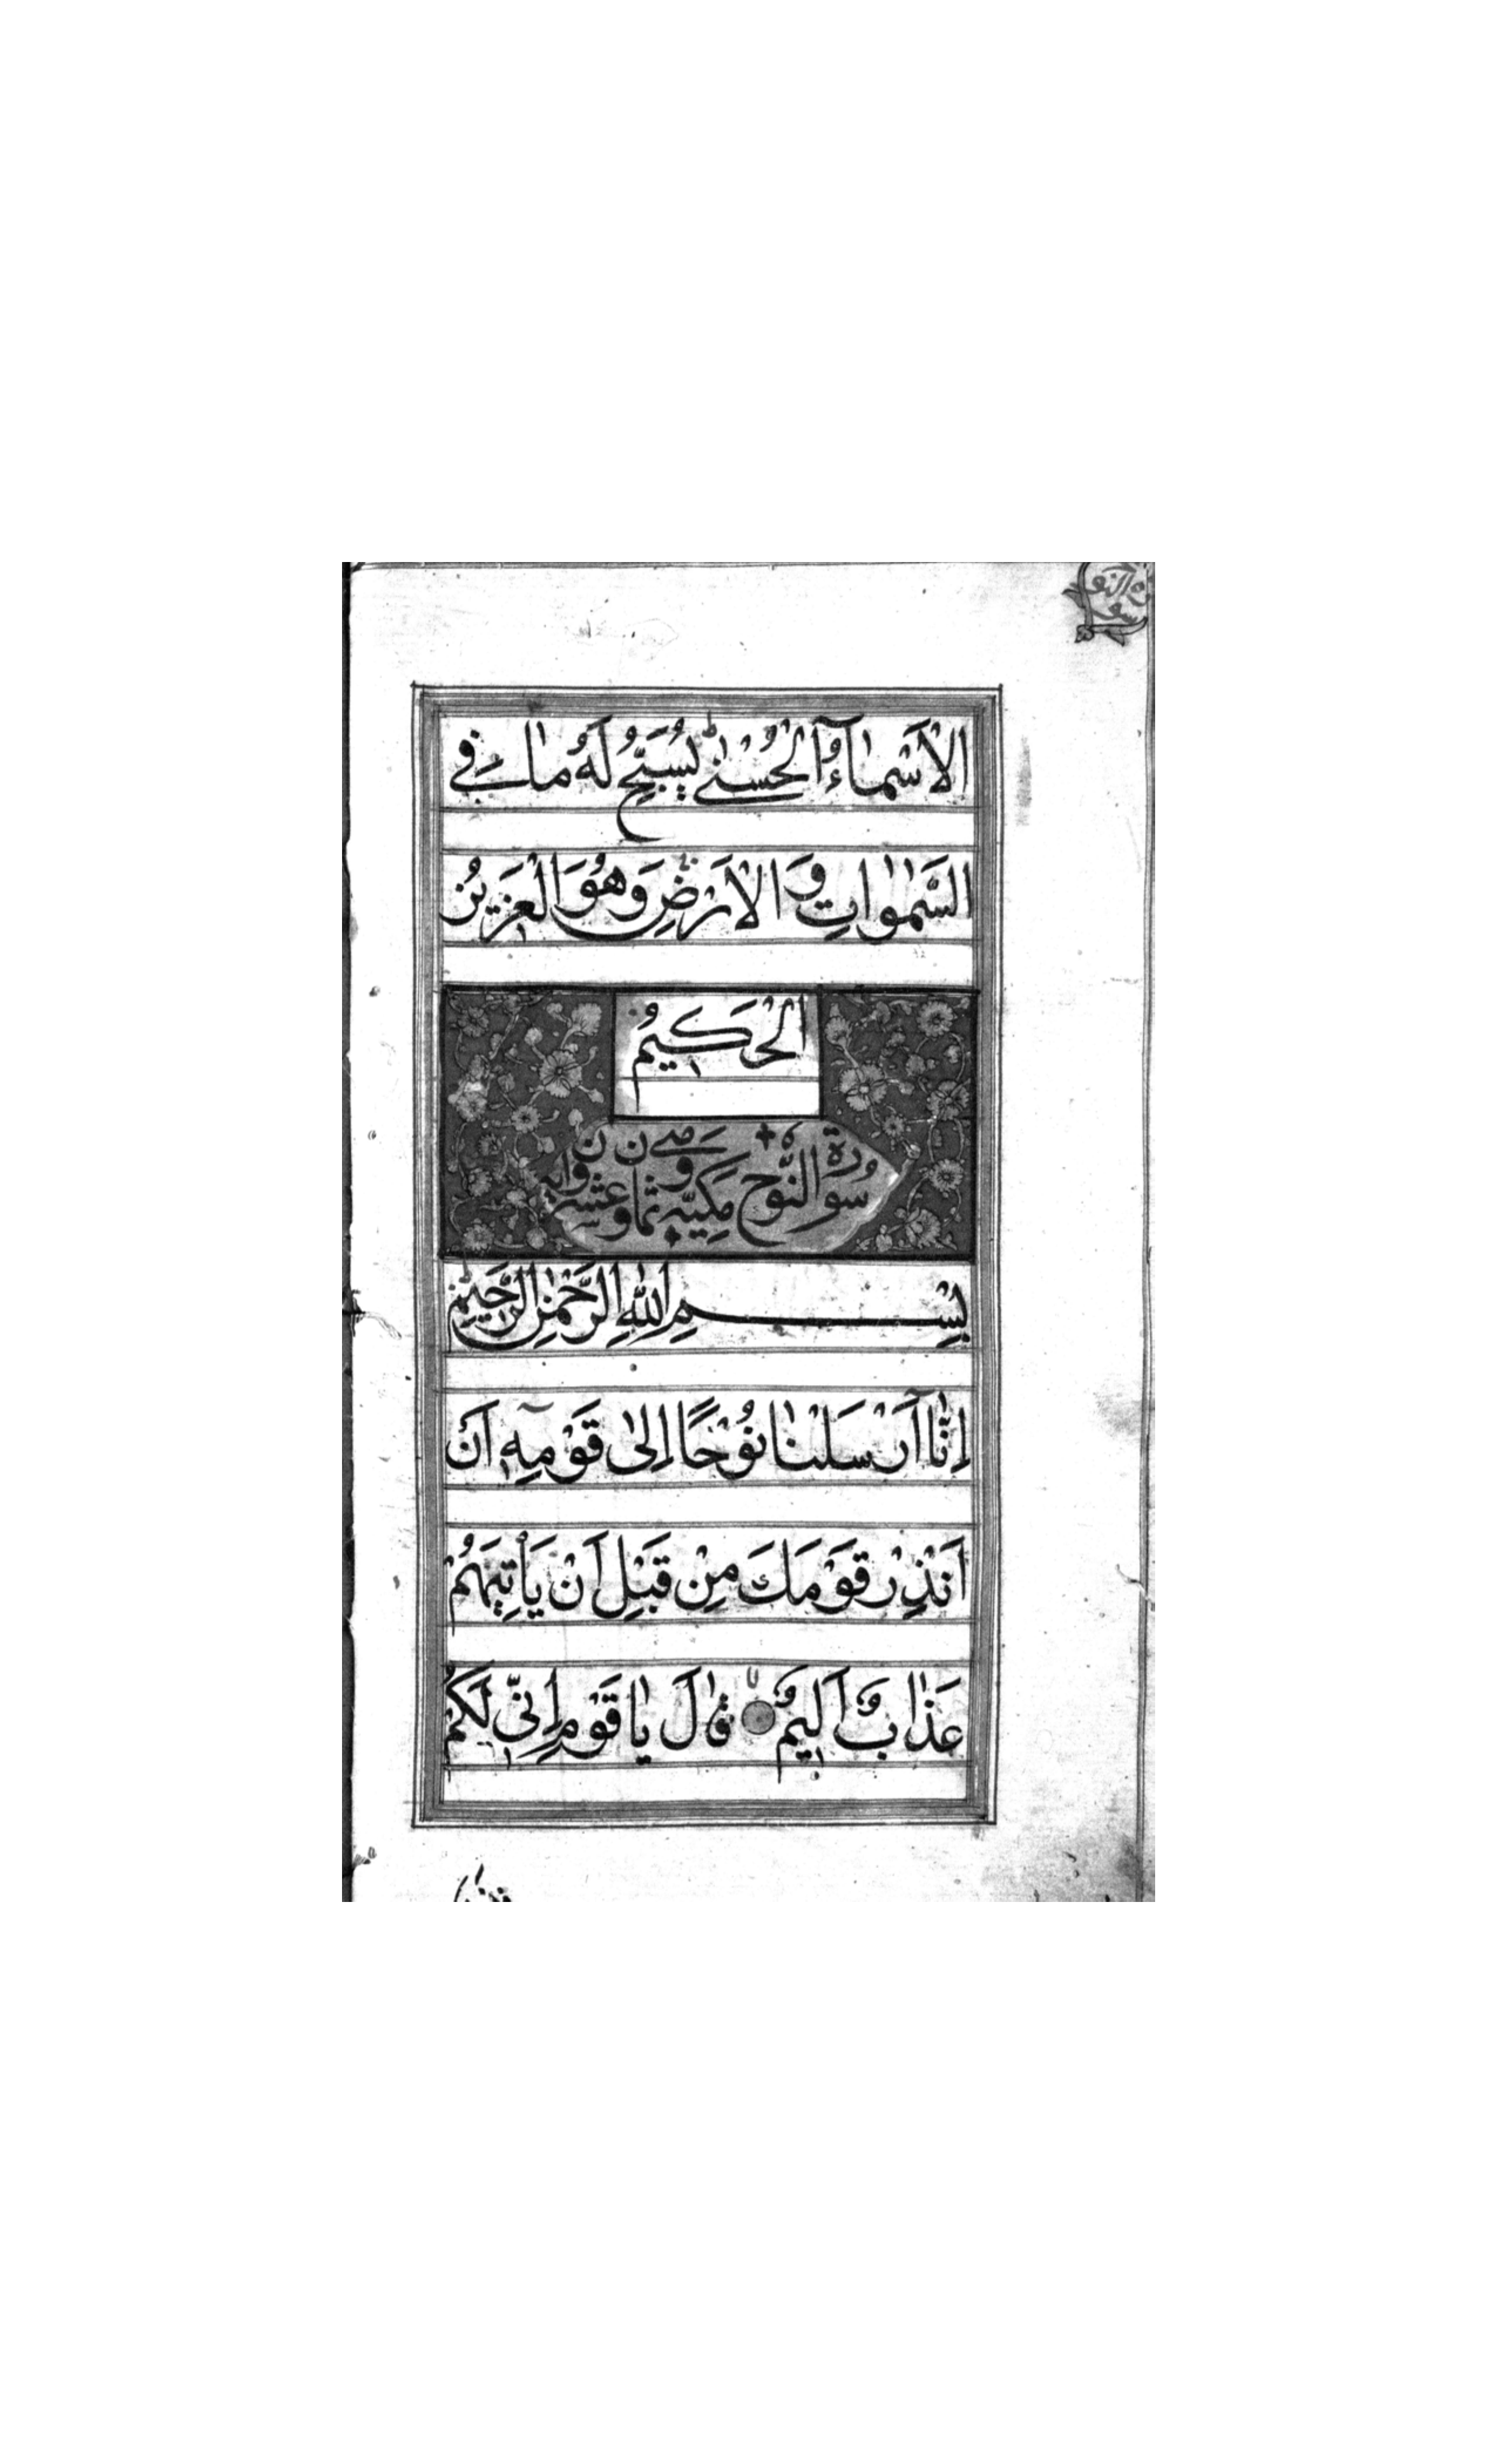 سورة النوح
الْاَسْمٰآءُ الْحُسْنٰى يُسَبِّحُ لَهُ مٰا فِي
السَّمٰوٰاتِ وَالْاَرْضِ وَهُوَ الْعَزِيزُ
الْحَكِيمُ
سورة النّوح مكيّة وهي ثمان وعشرون اية
بِسْمِ اللّٰهِ الرَّحْمٰنِ الرَّحِيْمِ
اِنّٰا اَرْسَلْنٰا نُوْحًا اِلىٰ قَوْمِهٖٓ اَنْ
اَنْذِرْ قَوْمَكَ مِنْ قَبْلِ اَنْ يَأْتِيَهُمْ
عَذٰابٌ اَلِيمٌ قٰالَ يٰا قَوْمِ اِنّي لَكُمْ